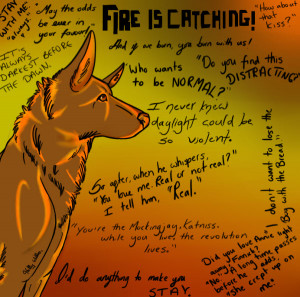 STAY
WITH ME.
"Always."
"May the odds
be ever in
your favour"
FIRE IS CATCHING!
"How about
that
kiss?"
And if we burn, you burn with us!
IT'S
ALWAYS
DARKEST BEFORE
THE DAWN.
"Who wants
to be
NORMAL?"
"Do you find this
DISTRACTING?"
I never knew
daylight could be
so violent.
So after, when he whispers,
"You love me. Real or not real?"
I tell him,
"Real."
I don't want to lose the
Boy with the Bread
"You're the Mockingjay, Katniss.
while you live, the revolution
lives."
Did you love Annie right
away, Finnick?
"No." A long time passes
before he adds,
"She crept up on
me."
I'd do anything to make you
STAY.